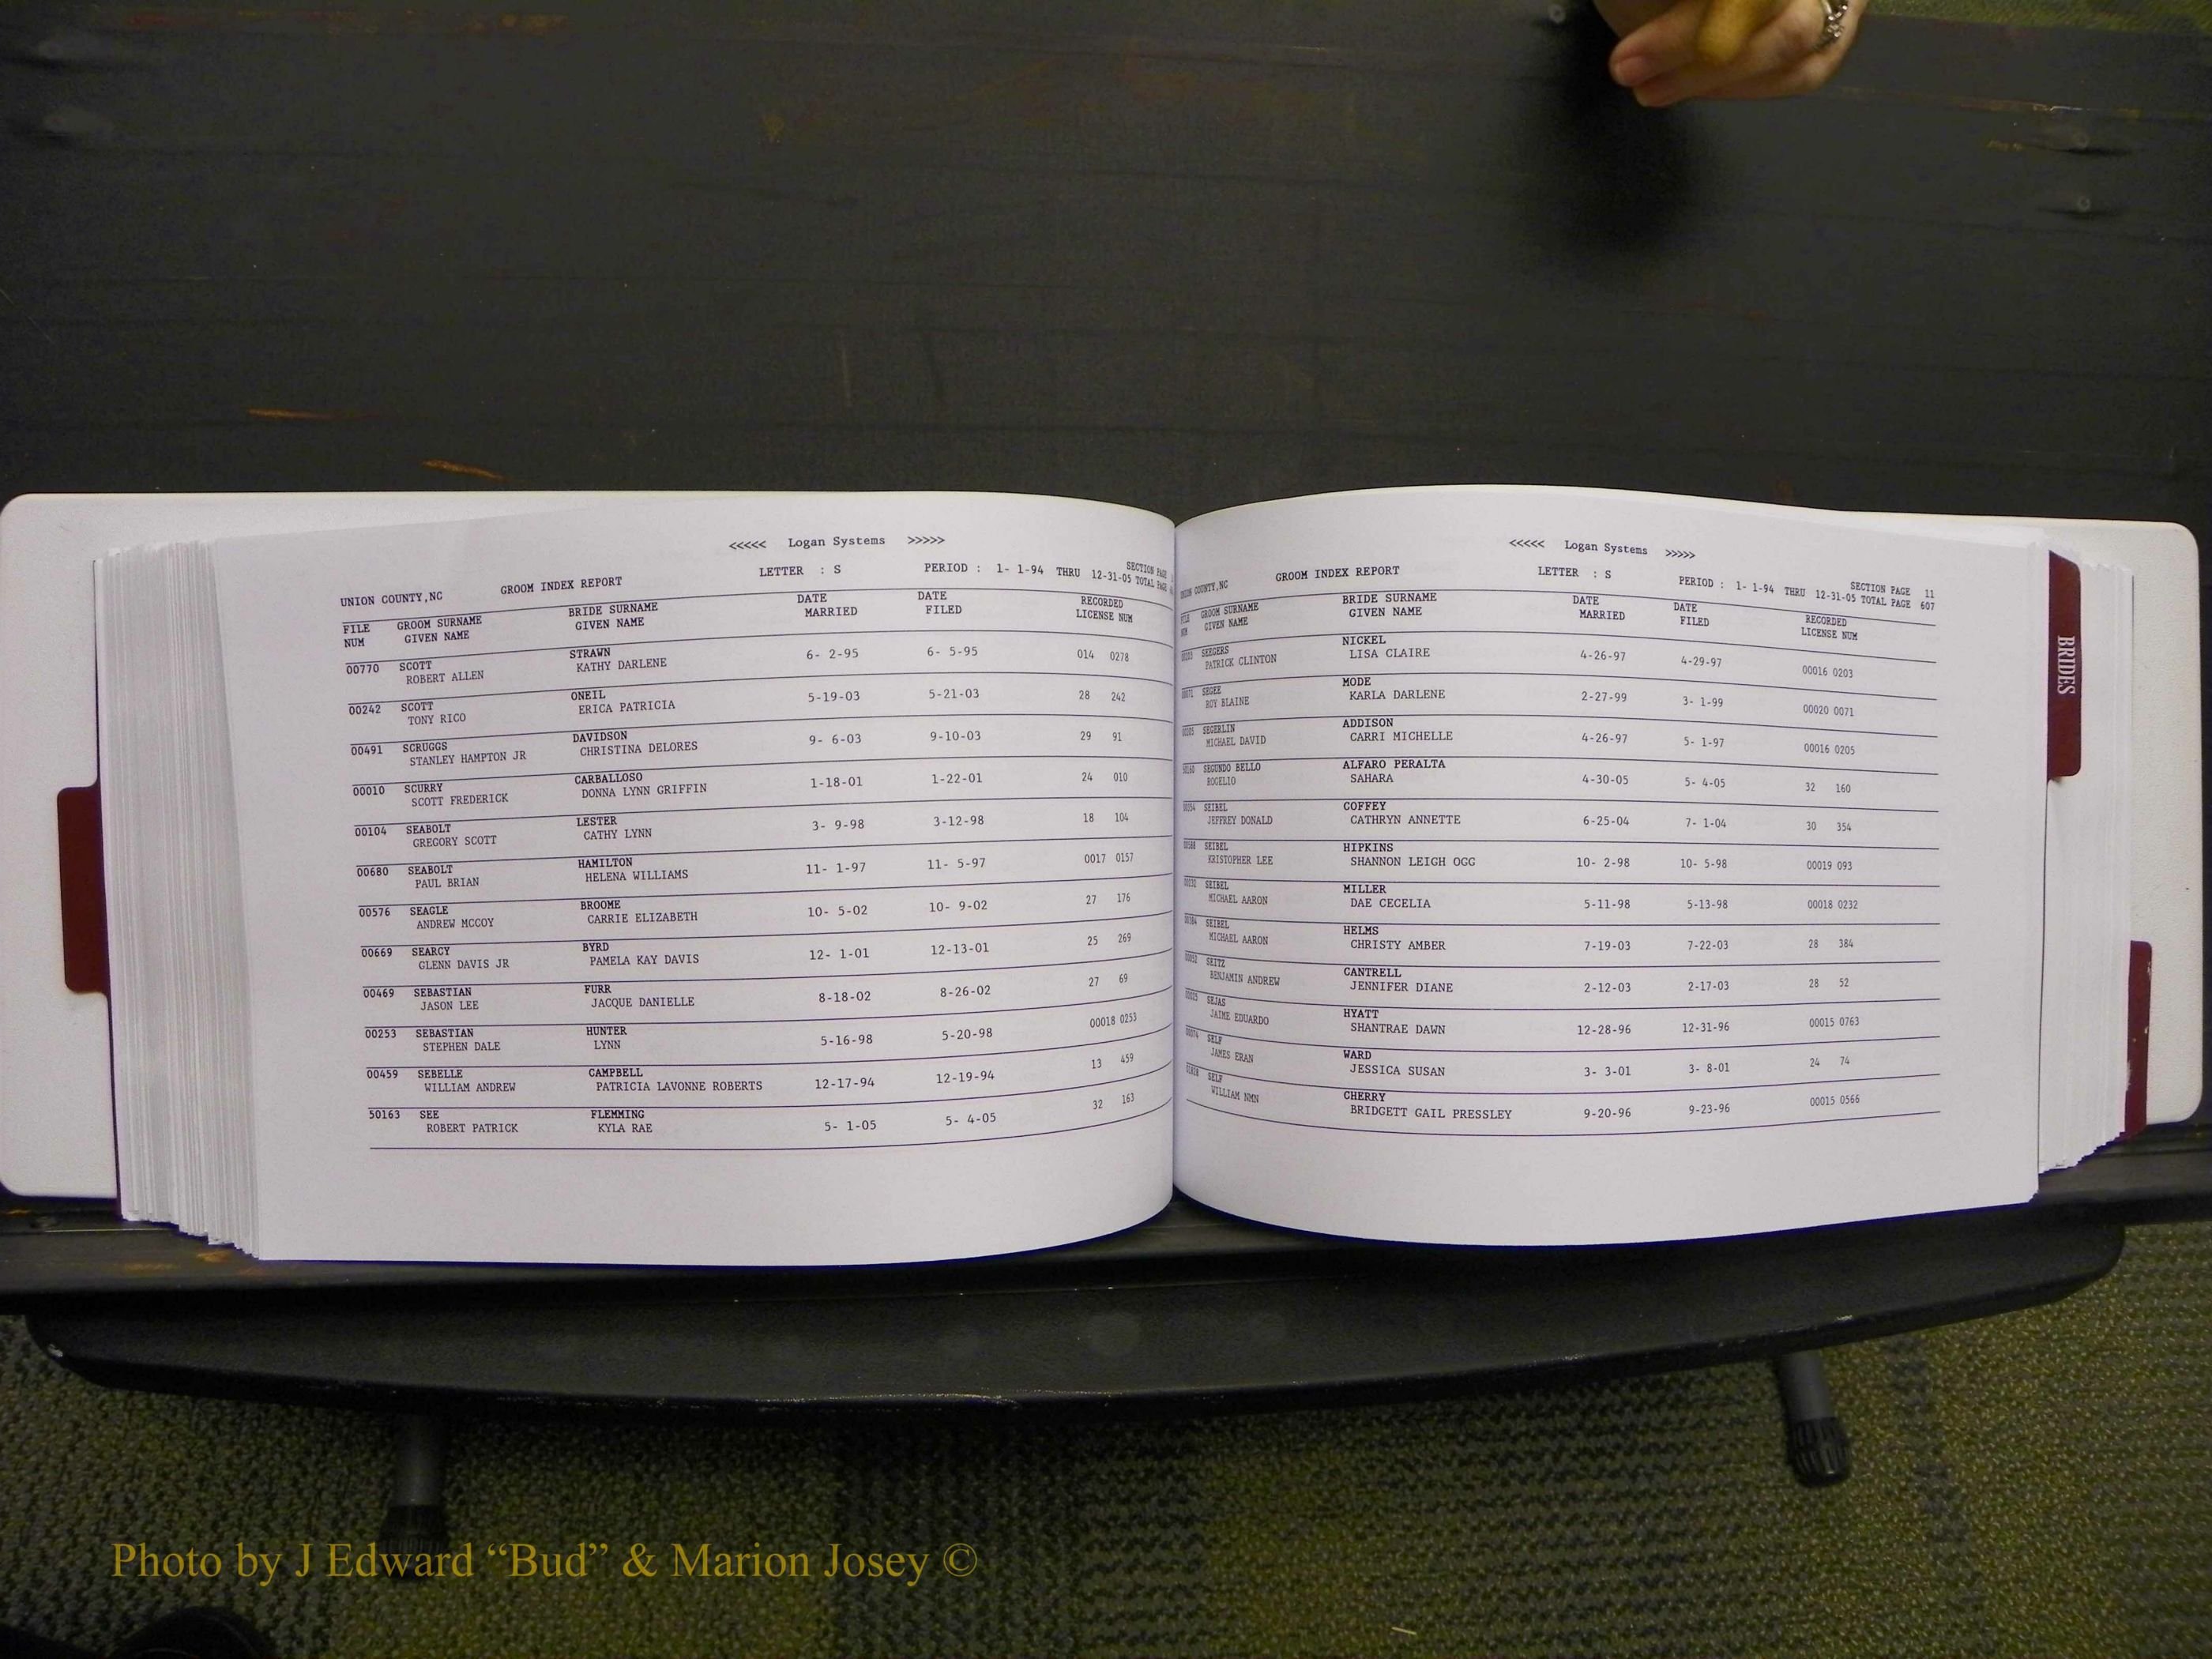 <<<<< Logan Systems >>>>>
UNION COUNTY,NC GROOM INDEX REPORT LETTER : S PERIOD : 1- 1-94 THRU 12-31-05 SECTION PAGE
TOTAL PAGE
FILE GROOM SURNAME BRIDE SURNAME DATE DATE RECORDED
NUM GIVEN NAME GIVEN NAME MARRIED FILED LICENSE NUM
00770 SCOTT STRAWN 6- 2-95 6- 5-95 014 0278
ROBERT ALLEN KATHY DARLENE
00242 SCOTT ONEIL 5-19-03 5-21-03 28 242
TONY RICO ERICA PATRICIA
00491 SCRUGGS DAVIDSON 9- 6-03 9-10-03 29 91
STANLEY HAMPTON JR CHRISTINA DELORES
00010 SCURRY CARBALLOSO 1-18-01 1-22-01 24 010
SCOTT FREDERICK DONNA LYNN GRIFFIN
00104 SEABOLT LESTER 3- 9-98 3-12-98 18 104
GREGORY SCOTT CATHY LYNN
00680 SEABOLT HAMILTON 11- 1-97 11- 5-97 0017 0157
PAUL BRIAN HELENA WILLIAMS
00576 SEAGLE BROOME 10- 5-02 10- 9-02 27 176
ANDREW MCCOY CARRIE ELIZABETH
00669 SEARCY BYRD 12- 1-01 12-13-01 25 269
GLENN DAVIS JR PAMELA KAY DAVIS
00469 SEBASTIAN FURR 8-18-02 8-26-02 27 69
JASON LEE JACQUE DANIELLE
00253 SEBASTIAN HUNTER 5-16-98 5-20-98 00018 0253
STEPHEN DALE LYNN
00459 SEBELLE CAMPBELL 12-17-94 12-19-94 13 459
WILLIAM ANDREW PATRICIA LAVONNE ROBERTS
50163 SEE FLEMMING 5- 1-05 5- 4-05 32 163
ROBERT PATRICK KYLA RAE
<<<<< Logan Systems >>>>>
UNION COUNTY,NC GROOM INDEX REPORT LETTER : S PERIOD : 1- 1-94 THRU 12-31-05 SECTION PAGE 11
TOTAL PAGE 607
FILE GROOM SURNAME BRIDE SURNAME DATE DATE RECORDED
NUM GIVEN NAME GIVEN NAME MARRIED FILED LICENSE NUM
SEEGERS NICKEL 4-26-97 4-29-97 00016 0203
PATRICK CLINTON LISA CLAIRE
SEGEE MODE 2-27-99 3- 1-99 00020 0071
ROY BLAINE KARLA DARLENE
SEGERLIN ADDISON 4-26-97 5- 1-97 00016 0205
MICHAEL DAVID CARRI MICHELLE
SEGUNDO BELLO ALFARO PERALTA 4-30-05 5- 4-05 32 160
ROGELIO SAHARA
SEIBEL COFFEY 6-25-04 7- 1-04 30 354
JEFFREY DONALD CATHRYN ANNETTE
SEIBEL HIPKINS 10- 2-98 10- 5-98 00019 093
KRISTOPHER LEE SHANNON LEIGH OGG
SEIBEL MILLER 5-11-98 5-13-98 00018 0232
MICHAEL AARON DAE CECELIA
SEIBEL HELMS 7-19-03 7-22-03 28 384
MICHAEL AARON CHRISTY AMBER
SEITZ CANTRELL 2-12-03 2-17-03 28 52
BENJAMIN ANDREW JENNIFER DIANE
SEJAS HYATT 12-28-96 12-31-96 00015 0763
JAIME EDUARDO SHANTRAE DAWN
SELF WARD 3- 3-01 3- 8-01 24 74
JAMES ERAN JESSICA SUSAN
SELF CHERRY 9-20-96 9-23-96 00015 0566
WILLIAM NMN BRIDGETT GAIL PRESSLEY
BRIDES
Photo by J Edward “Bud” & Marion Josey ©